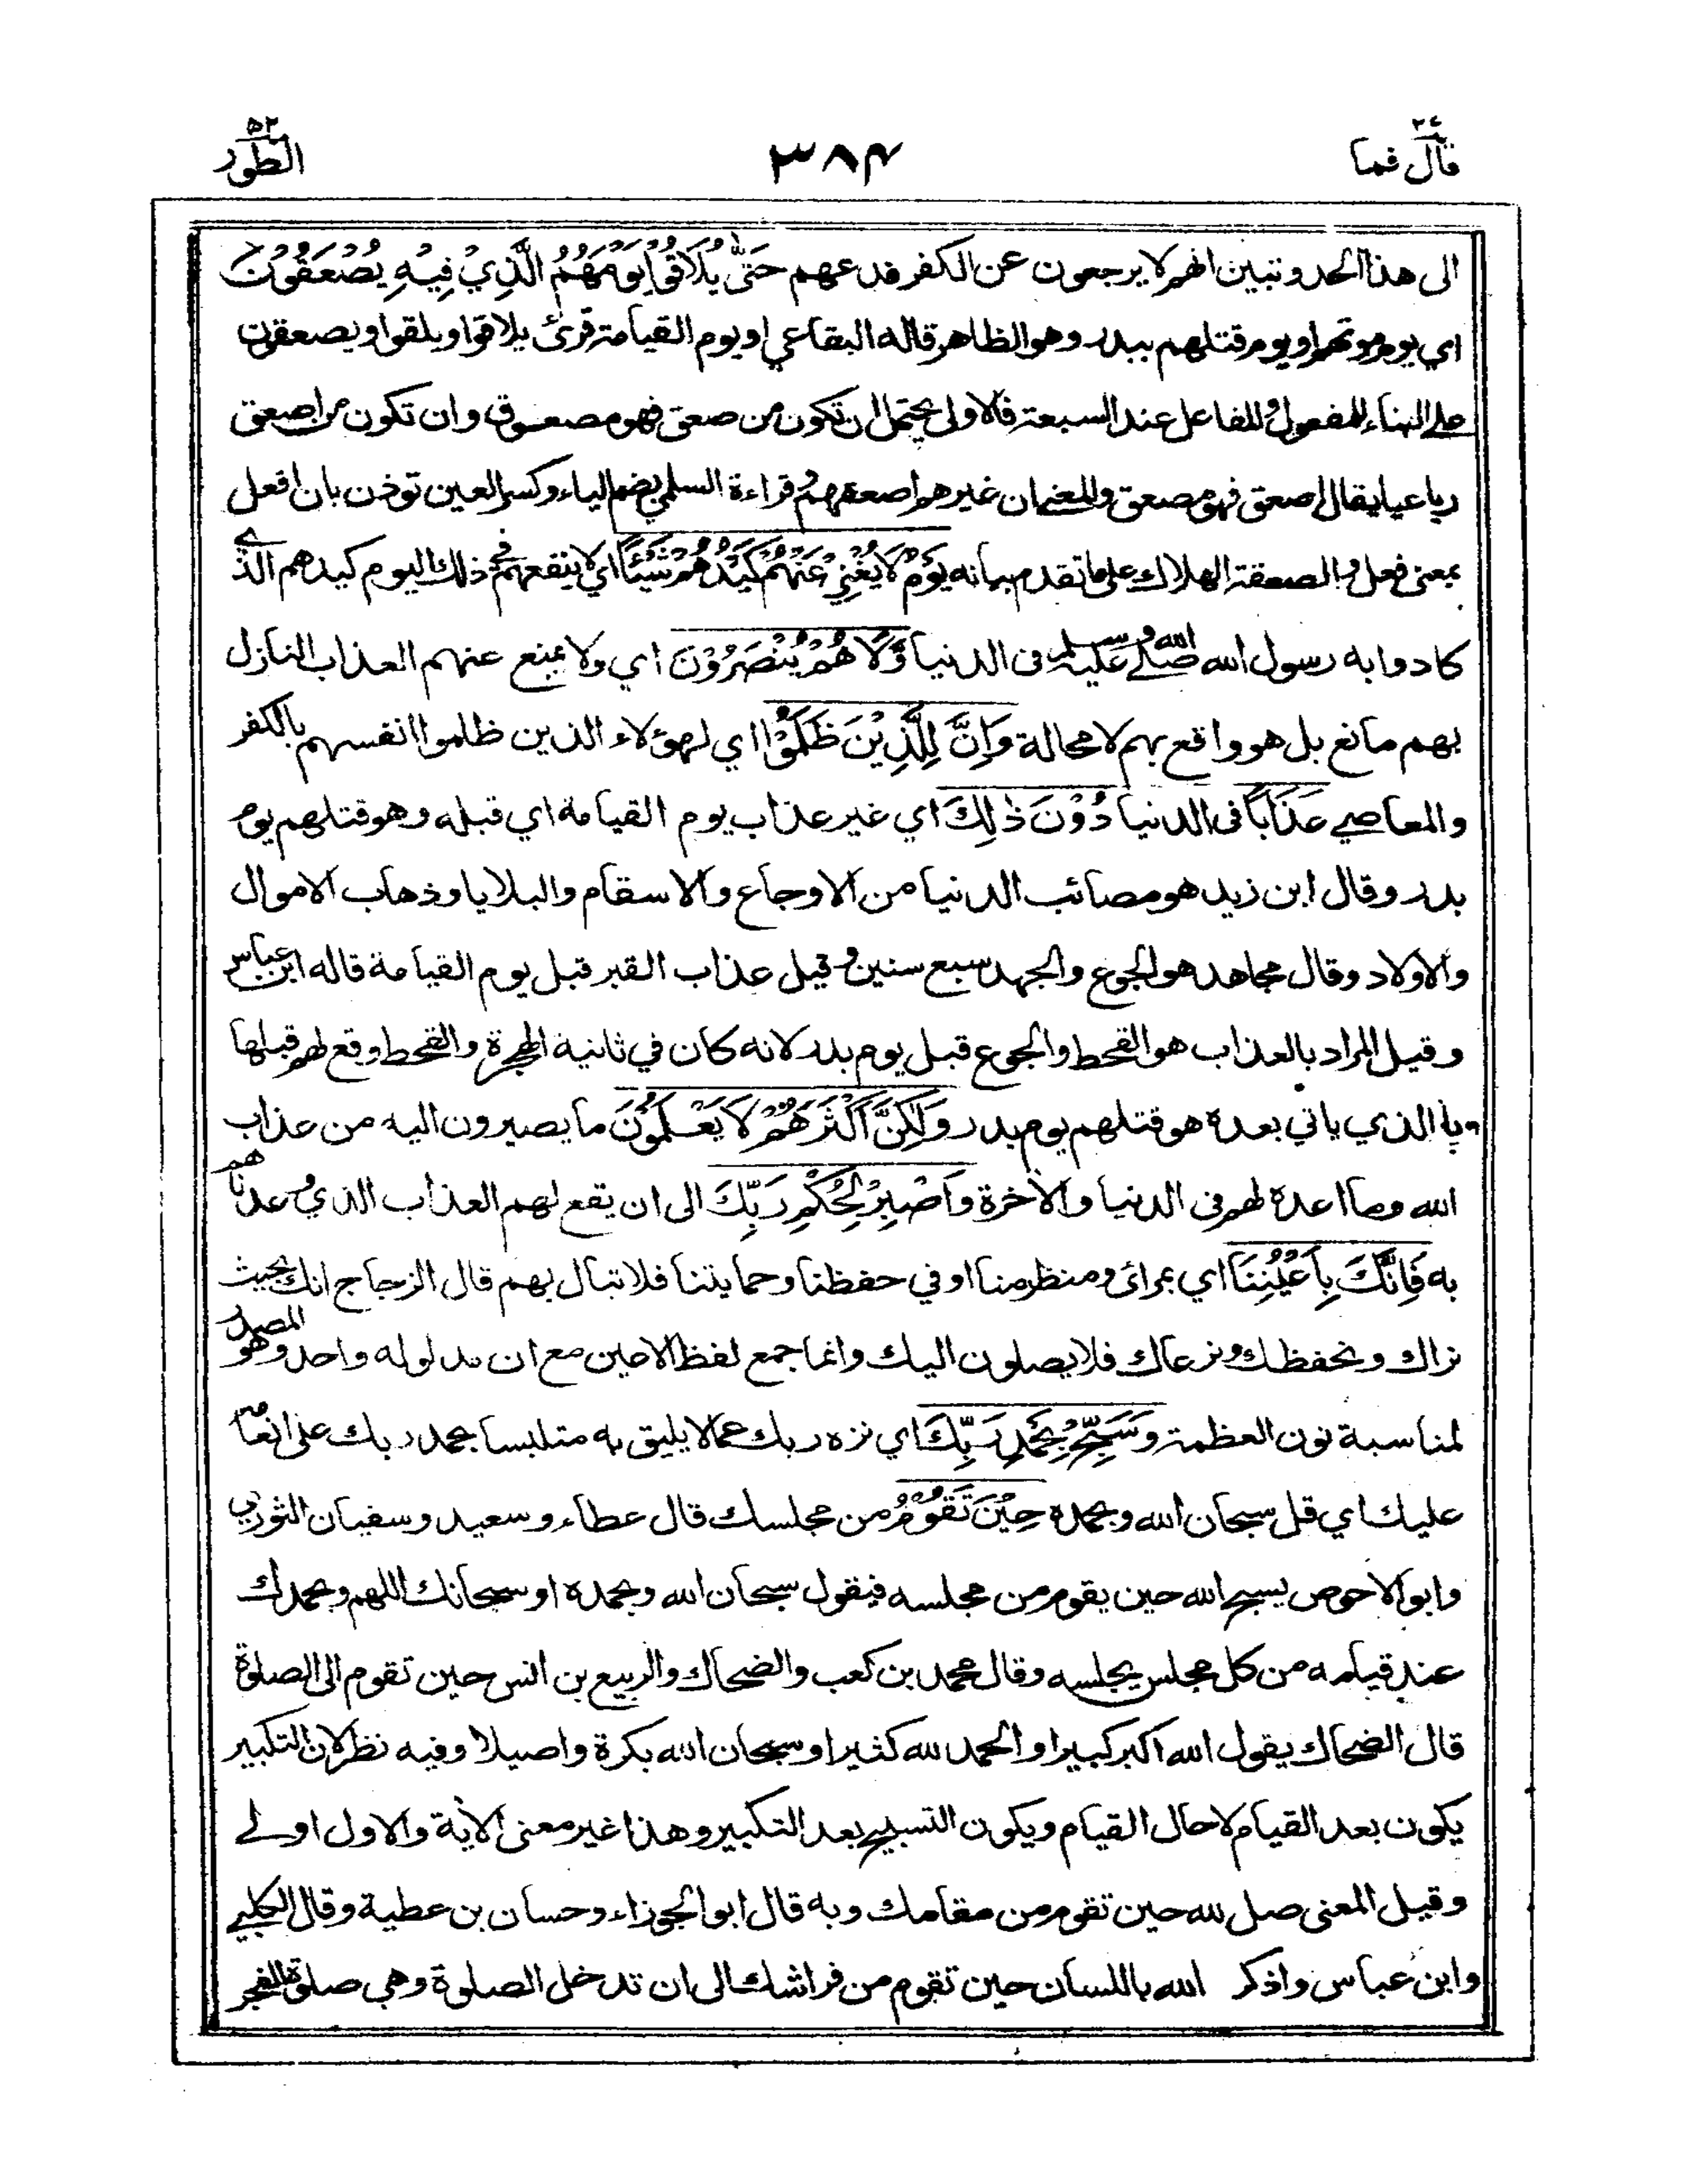 قال فما ٢٧
٣٨٤
الطور ٥٢
الى هذا الحد وتبين انهم لا يرجعون عن الكفر فدعهم حَتّٰى يُلَاقُوْا يَوْمَهُمُ الَّذِيْ فِيْهِ يُصْعَقُوْنَ
اي يوم موتهم او يوم قتلهم ببدر وهو الظاهر قاله البقاعي او يوم القيامة قرئ يلاقوا ويلقوا ويصعقون
على البناء للمفعول وللفاعل عند السبعة فالاولى يحتمل ان تكون من صعق فهو مصعوق وان تكون من اصعق
رباعيا يقال اصعق فهو مصعق والمعنى ان غيرهم اصعقهم وقراءة السلمي بضم الياء وكسر العين توذن بان افعل
بمعنى فعل والصعقة الهلاك على ما تقدم بيانه يَوْمَ لَا يُغْنِيْ عَنْهُمْ كَيْدُهُمْ شَيْئًا اي لا ينفعهم في ذلك اليوم كيدهم الذي
كادوا به رسول الله صلى الله عليه وسلم فى الدنيا وَّلَا هُمْ يُنْصَرُوْنَ اي ولا يمنع عنهم العذاب النازل
بهم مانع بل هو واقع بهم لا محالة وَاِنَّ لِلَّذِيْنَ ظَلَمُوْا اي لهؤلاء الذين ظلموا انفسهم بالكفر
والمعاصي عَذَابًا فى الدنيا دُوْنَ ذٰلِكَ اي غير عذاب يوم القيامة اي قبله وهو قتلهم يوم
بدر وقال ابن زيد هو مصائب الدنيا من الاوجاع والاسقام والبلايا وذهاب الاموال
والاولاد وقال مجاهد هو الجوع والجهد سبع سنين وقيل عذاب القبر قبل يوم القيامة قاله ابن عباس
وقيل المراد بالعذاب هو القحط والجوع قبل يوم بدر لانه كان في ثانية الهجرة والقحط وقع لهم قبلها
وبالذي ياتي بعده هو قتلهم يوم بدر وَلٰكِنَّ اَكْثَرَهُمْ لَا يَعْلَمُوْنَ ما يصيرون اليه من عذاب
الله وما اعده لهم فى الدنيا والاٰخرة وَاصْبِرْ لِحُكْمِ رَبِّكَ الى ان يقع لهم العذاب الذي وعدناهم
به فَاِنَّكَ بِاَعْيُنِنَا اي بمرائ ومنظر منا او في حفظنا وحمايتنا فلا تبال بهم قال الزجاج انك بحيث
نراك ونحفظك ونرعاك فلا يصلون اليك وانما جمع لفظ الاعين مع ان مدلوله واحد وهو المصدر
لمناسبة نون العظمة وَسَبِّحْ بِحَمْدِ رَبِّكَ اي نزه ربك عما لا يليق به متلبسا بحمد ربك على انعامه
عليك اي قل سبحان الله وبحمده حِيْنَ تَقُوْمُ من مجلسك قال عطاء وسعيد وسفيان الثوري
وابو الاحوص يسبح الله حين يقوم من مجلسه فيقول سبحان الله وبحمده او سبحانك اللهم وبحمدك
عند قيامه من كل مجلس يجلسه وقال محمد بن كعب والضحاك والربيع بن انس حين تقوم الى الصلوة
قال الضحاك يقول الله اكبر كبيرا والحمد لله كثيرا وسبحان الله بكرة واصيلا وفيه نظر لان التكبير
يكون بعد القيام لا حال القيام ويكون التسبيح بعد التكبير وهذا غير معنى الاٰية والاول اولى
وقيل المعنى صل لله حين تقوم من مقامك وبه قال ابو الجوزاء وحسان بن عطية وقال الكلبي
وابن عباس واذكر الله باللسان حين تقوم من فراشك الى ان تدخل الصلوة وهي صلوة الفجر